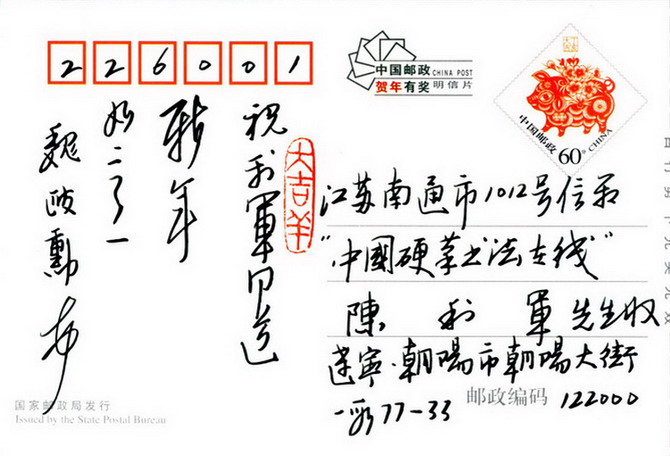 226001
中国邮政 CHINA POST
贺年有奖 明信片
中国邮政 CHINA
60分
祝利軍同道
新年
如意
魏
勳
大吉羊
江苏南通市1012号信箱
"中國硬笔书法在线"
陳利軍先生收
遼宁·朝陽市朝陽大街
一段77-33
邮政编码 122000
国家邮政局发行
Issued by the State Postal Bureau